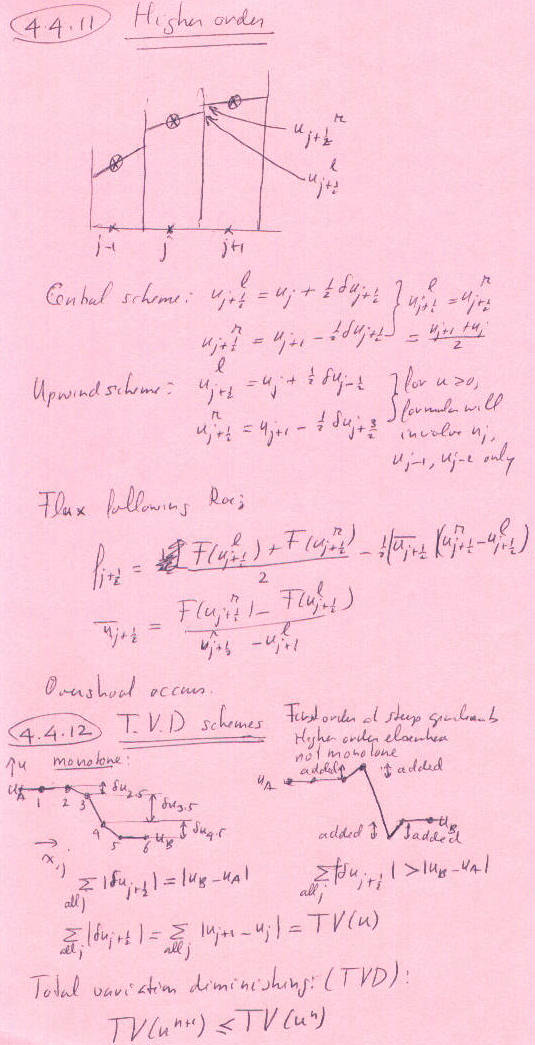 4.4.11 Higher order
u_{j+½}^r
u_{j+½}^l
j-1 j j+1
Central scheme: u_{j+½}^l = u_j + ½ δu_{j+½} } u_{j+½}^l = u_{j+½}^r
u_{j+½}^r = u_{j+1} - ½ δu_{j+½} = (u_{j+1} + u_j)/2
Upwind scheme: u_{j+½}^l = u_j + ½ δu_{j-½} } for u ≥ 0,
u_{j+½}^r = u_{j+1} - ½ δu_{j+3/2} formula will
involve u_j,
u_{j-1}, u_{j-2} only
Flux following Roe:
f_{j+½} = (F(u_{j+½}^l) + F(u_{j+½}^r))/2 - ½|ū_{j+½}|(u_{j+½}^r - u_{j+½}^l)
ū_{j+½} = (F(u_{j+½}^r) - F(u_{j+½}^l))/(u_{j+½}^r - u_{j+1}^l)
Overshoot occurs.
4.4.12 T.V.D schemes
First order at steep gradients
Higher order elsewhere
not monotone
↑u monotone:
u_A 1 2 3 4 5 6 u_B
δu_{2.5}
δu_{3.5}
δu_{4.5}
→ x, j
u_A added added
added added u_B
∑_{all j} |δu_{j+½}| = |u_B - u_A|
∑_{all j} |δu_{j+½}| > |u_B - u_A|
∑_{all j} |δu_{j+½}| = ∑_{all j} |u_{j+1} - u_j| = TV(u)
Total variation diminishing: (TVD):
TV(u^{n+1}) ≤ TV(u^n)